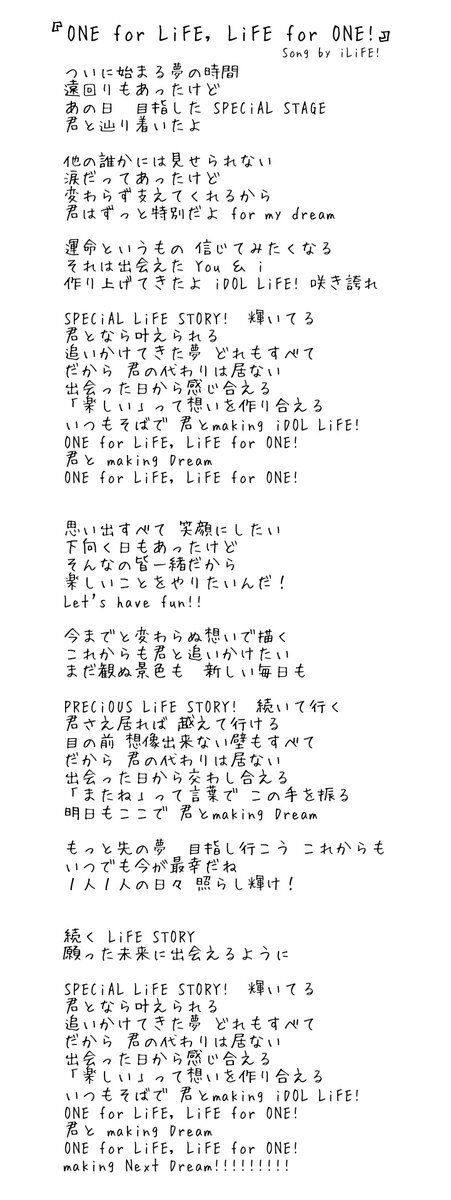 『ONE for LiFE, LiFE for ONE!』
Song by iLiFE!
ついに始まる夢の時間
遠回りもあったけど
あの日　目指した SPECiAL STAGE
君と辿り着いたよ
他の誰かには見せられない
涙だってあったけど
変わらず支えてくれるから
君はずっと特別だよ for my dream
運命というもの 信じてみたくなる
それは出会えた You & i
作り上げてきたよ iDOL LiFE! 咲き誇れ
SPECiAL LiFE STORY!　輝いてる
君となら叶えられる
追いかけてきた夢 どれもすべて
だから 君の代わりは居ない
出会った日から感じ合える
「楽しい」って想いを作り合える
いつもそばで 君とmaking iDOL LiFE!
ONE for LiFE, LiFE for ONE!
君と making Dream
ONE for LiFE, LiFE for ONE!
思い出すべて 笑顔にしたい
下向く日もあったけど
そんなの皆一緒だから
楽しいことをやりたいんだ！
Let's have fun!!
今までと変わらぬ想いで描く
これからも君と追いかけたい
まだ観ぬ景色も　新しい毎日も
PRECiOUS LiFE STORY!　続いて行く
君さえ居れば 越えて行ける
目の前 想像出来ない壁もすべて
だから 君の代わりは居ない
出会った日から交わし合える
「またね」って言葉で この手を振る
明日もここで 君とmaking Dream
もっと先の夢　目指し行こう これからも
いつでも今が最幸だね
１人１人の日々 照らし輝け！
続く LiFE STORY
願った未来に出会えるように
SPECiAL LiFE STORY!　輝いてる
君となら叶えられる
追いかけてきた夢 どれもすべて
だから 君の代わりは居ない
出会った日から感じ合える
「楽しい」って想いを作り合える
いつもそばで 君とmaking iDOL LiFE!
ONE for LiFE, LiFE for ONE!
君と making Dream
ONE for LiFE, LiFE for ONE!
making Next Dream!!!!!!!!!